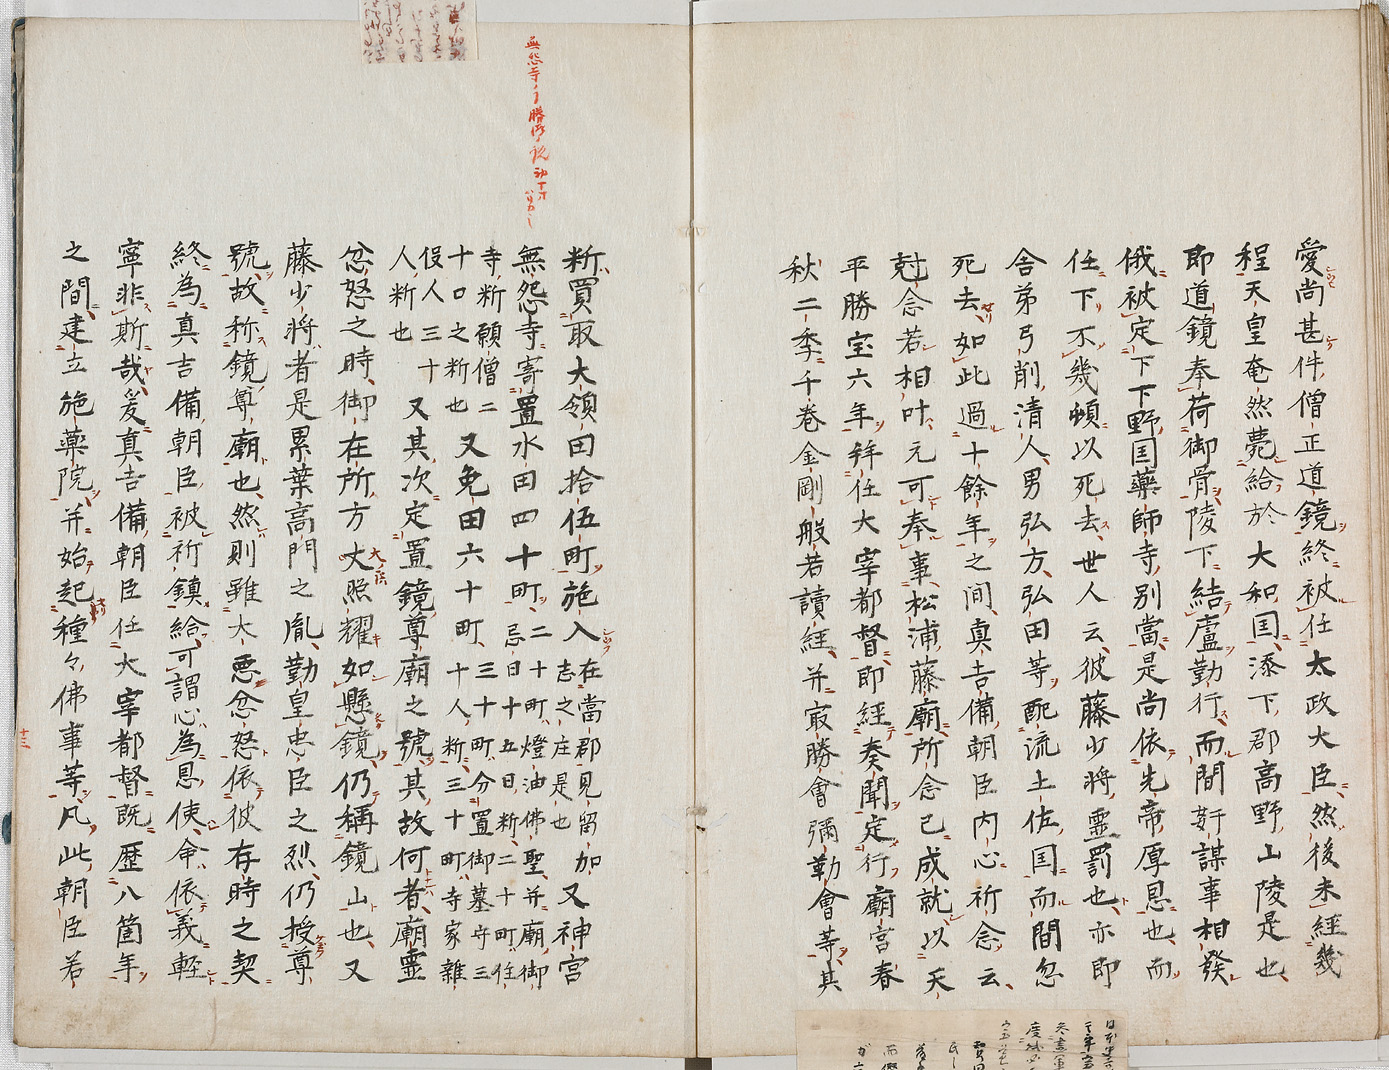 愛尚甚件僧正道鏡終被任太政大臣然後未經幾
程天皇奄然薨給於大和国添下郡高野山陵是也
即道鏡奉荷御骨陵下結廬勤行而間奸謀事相發
俄被定下下野国藥師寺別當是尚依先帝厚恩也而
任下不幾頓以死去世人云彼藤少将霊罰也亦即
舍弟弓削清人男弘方弘田等配流土佐国而間忽
死去如此過十餘年之间真吉備朝臣内心祈念云
尅念若相叶元可奉事松浦藤廟所念已成就以天
平勝宝六年拜任大宰都督即經奏聞定行廟宮春
秋二季千巻金剛般若讀經并最勝會彌勒會等其
新買取大領田拾伍町施入在當郡見留加志之庄是也又神宮
無怨寺寄置水田四十町二十町燈油佛聖并廟御忌日十五日新二十町住
寺新願僧二十口之新也又免田六十町三十町分置御墓守三十人新三十町寺家雜
役人三十人新也又其次定置鏡尊廟之號其故何者廟霊
忿怒之時御在所方丈照耀如懸鏡仍稱鏡山也又
藤少将者是累葉高門之胤勤皇忠臣之烈仍授尊
號故称鏡尊廟也然則雖大悪忿怒依彼存時之契
終為真吉備朝臣被祈鎮給可謂心為恩使命依義軽
寧非斯哉爰真吉備朝臣任大宰都督既歴八箇年
之間建立施藥院并始起種々佛事等凡此朝臣若
十三